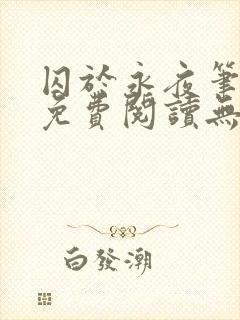 囚於永夜筆
免費閱讀無
白發潮